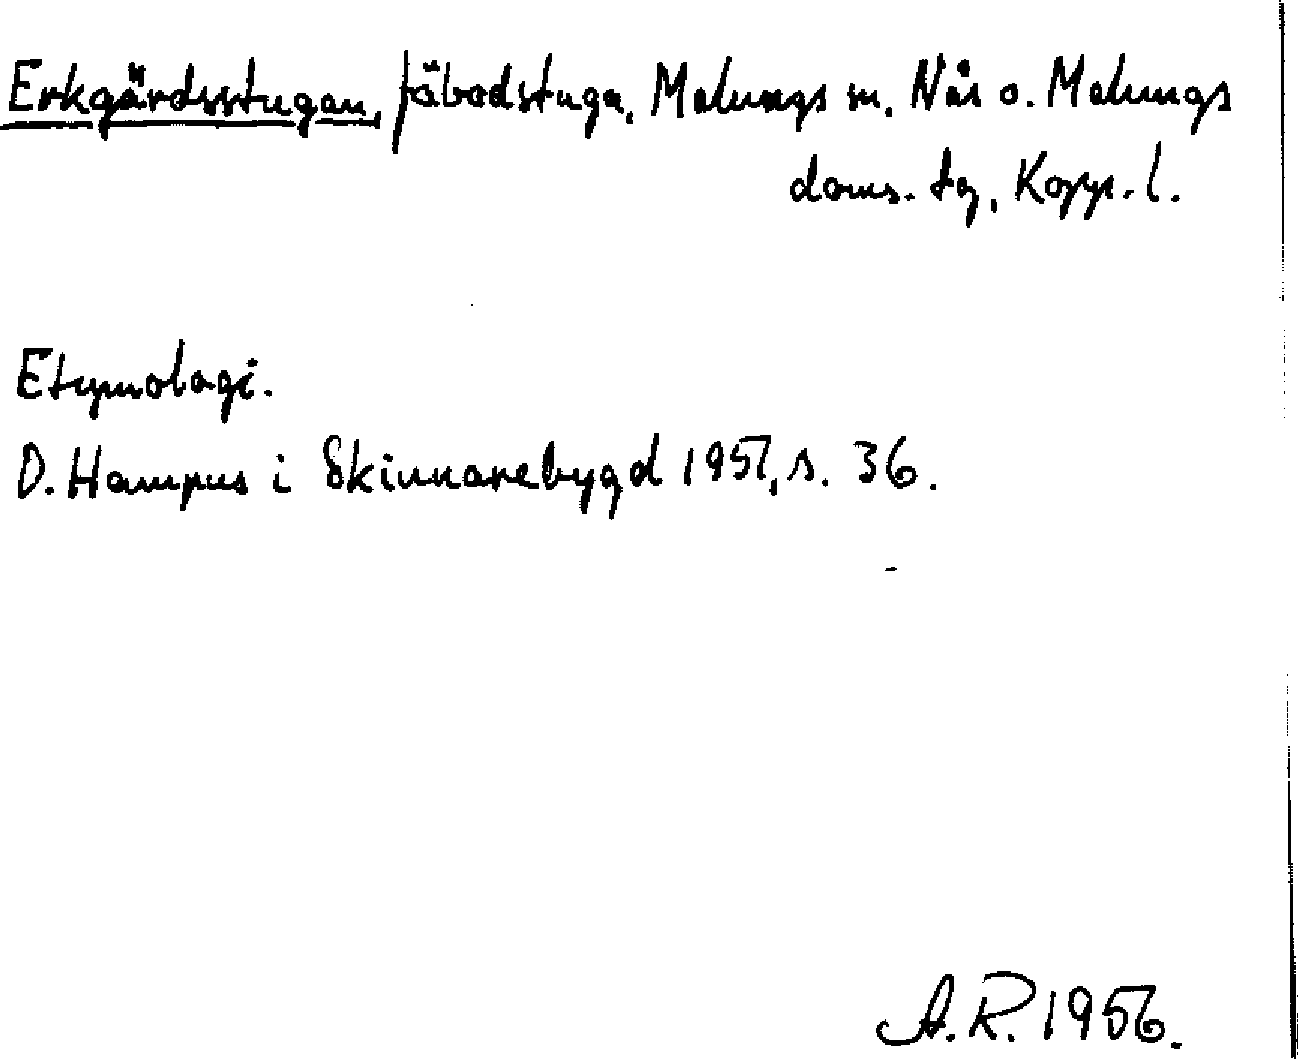 Erkgärdsstugan, fäbodstuga, Malungs sn, Nås o. Malungs
doms. tg, Kopp. l.
Etymologi.
O. Hampus i Skinnarebygd 1951, s. 36.
A.R. 1956.